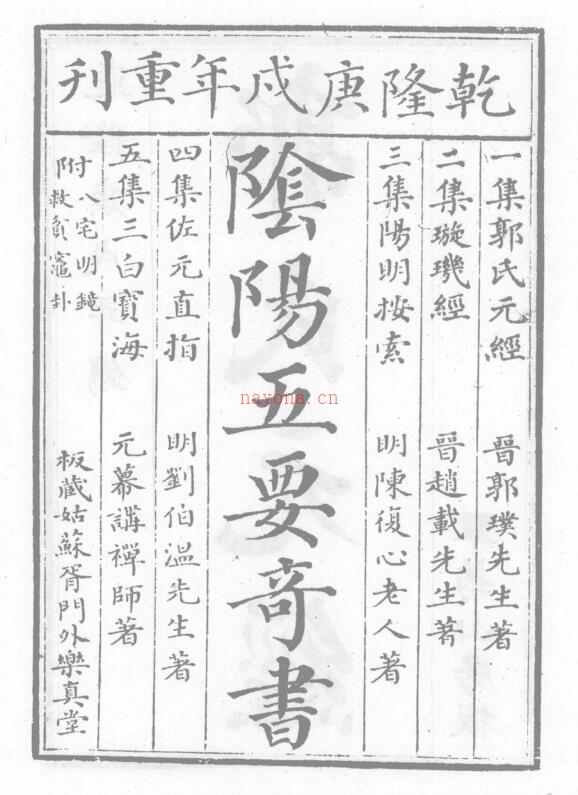 乾隆庚戌年重刊
一集郭氏元經　晉郭璞先生著
二集璇璣經　晉趙載先生著
三集陽明按索　明陳復心老人著
陰陽五要奇書
四集佐元直指　明劉伯溫先生著
五集三白寶海　元幕講禪師著
附八宅明鏡
附救貧竈卦
板藏姑蘇胥門外樂真堂
nayona.cn